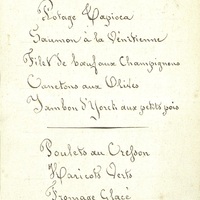 Potage Tapioca
Saumon à la Vénitienne
Filet de bœuf aux Champignons
Canetons aux Olives
Jambon d'Yorck aux petits pois
Poulets au Cresson
Haricots Verts
Fromage Glacé